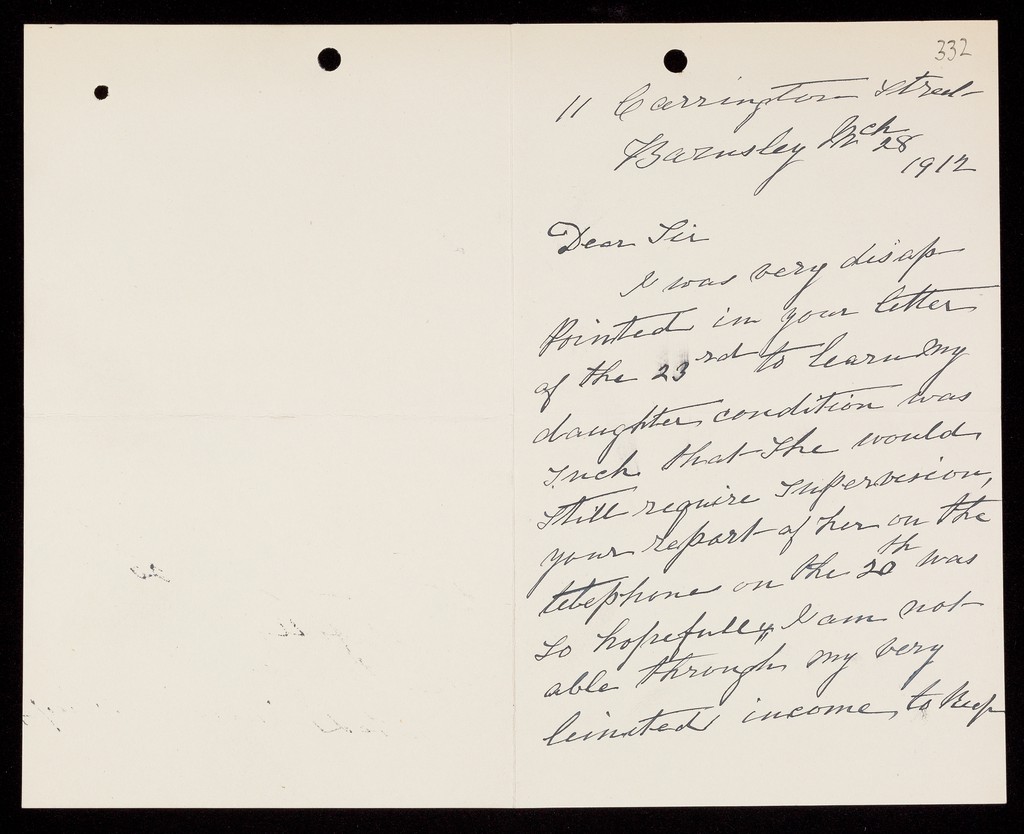 332
11 Carrington Street
Barnsley Mch 28
1912
Dear Sir
I was very disap
pointed in your letter
of the 23rd to learn My
daughter condition was
Such that She would
Still require Supervision,
your report of her on the
telephone on the 20th was
So hopefull, I am not
able through my very
leimited income, to Keep